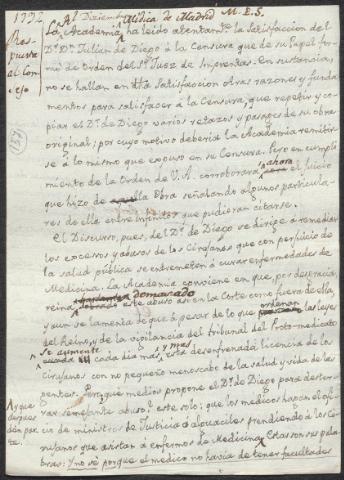 1792 Al Diziembre
Res-
puesta
al Con-
sejo
La Academia Médica de Madrid M.E.S.
ha leido atentamte. la Satisfaccion del
Dr. Dn. Julian de Diego à la Censura que de su Papel for-
mó de Orden del Sr. Juez de Imprentas. En sustancia,
no se hallan en dha Satisfaccion otras razones y funda-
mentos para satisfacer à la Censura, que repetir y co-
piar el Dr. de Diego varios retazos y pasages de su obra
original; por cuyo motivo deberia la Academia remitir-
se à lo mismo que expuso en su Censura. Pero en cumpli-
miento de la Orden de V.A. corroborará ahora el juicio
que hizo de la Obra señalando algunos particula-
res de ella entre infinitos que pudieran citarse.
El Discurso, pues, del Dr. de Diego se dirige à remediar
los excesos y abusos de los Cirujanos que con perjuicio de
la salud pública se entremeten à curar enfermedades de
Medicina. La Academia conviene en que, por desgracia,
reina demasiado este abuso asi en la Corte como fuera de ella,
y aun se lamenta de que à pesar de lo que ordenan las leyes
del Reino, y de la vigilancia del Tribunal del Proto-medicato
se aumente cada dia mas y mas esta desenfrenada licencia de los
Cirujanos con no pequeño menoscabo de la salud y vida de las
gentes. Pero qué medios propone el Dr. de Diego para dester-
rar semejante abuso? este solo; que los medicos hagan el ofi-
cio de ministros de Justicia ò alguaciles prendiendo à los Ci-
rujanos que asistan à enfermos de Medicina. Estas son sus pala-
bras: Y no sé porque el medico no havia de tener facultades